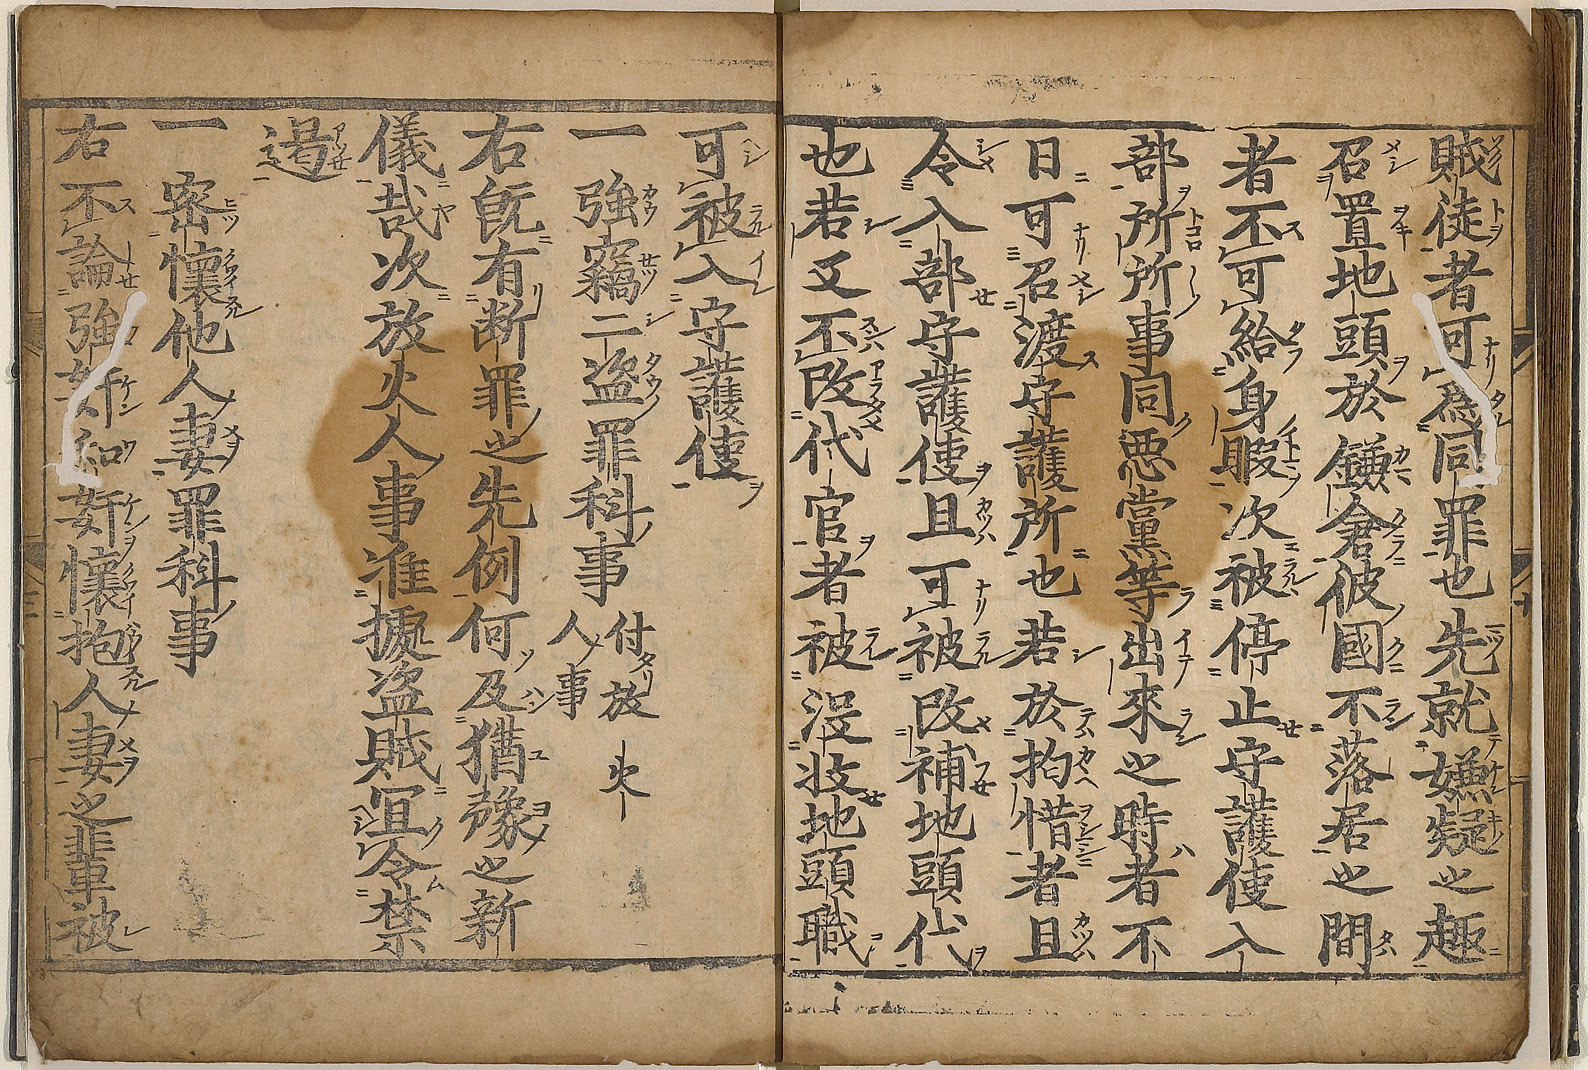 賊徒者可為同罪也先就嫌疑之趣
召置地頭於鎌倉彼國不落居之間
者不可給身暇次被停止守護使入
部所所事同悪黨等出來之時者不
日可召渡守護所也若於拘惜者且
令入部守護使且可被改補地頭代
也若又不改代官者被没收地頭職
可被入守護使
一強竊二盗罪科事付放火人事
右既有断罪之先例何及猶豫之新
儀哉次放火人事准據盗賊宜令禁
遏
一密懷他人妻罪科事
右不論強奸和奸懷抱人妻之輩被